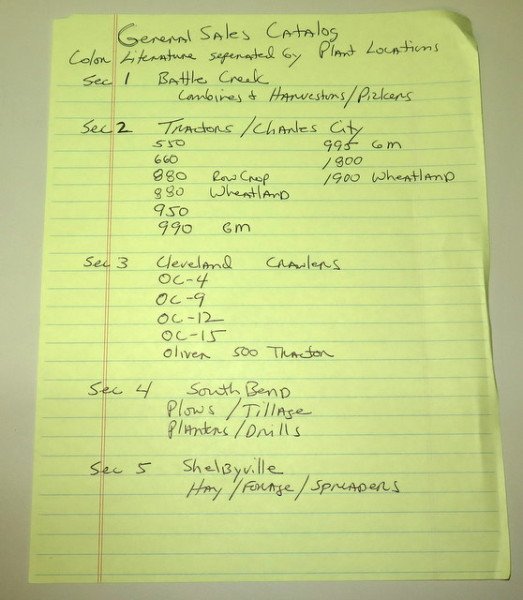 General Sales Catalog
Color Literature seperated by Plant Locations
Sec 1 Battle Creek
Combines & Harvestors/Pickers
Sec 2 Tractors/Charles City
550 995 GM
660 1800
880 Row Crop 1900 Wheatland
880 Wheatland
950
990 GM
Sec 3 Cleveland Crawlers
OC-4
OC-9
OC-12
OC-15
Oliver 500 Tractor
Sec 4 South Bend
Plows/Tillage
Planters/Drills
Sec 5 Shelbyville
Hay/Forage/Spreaders